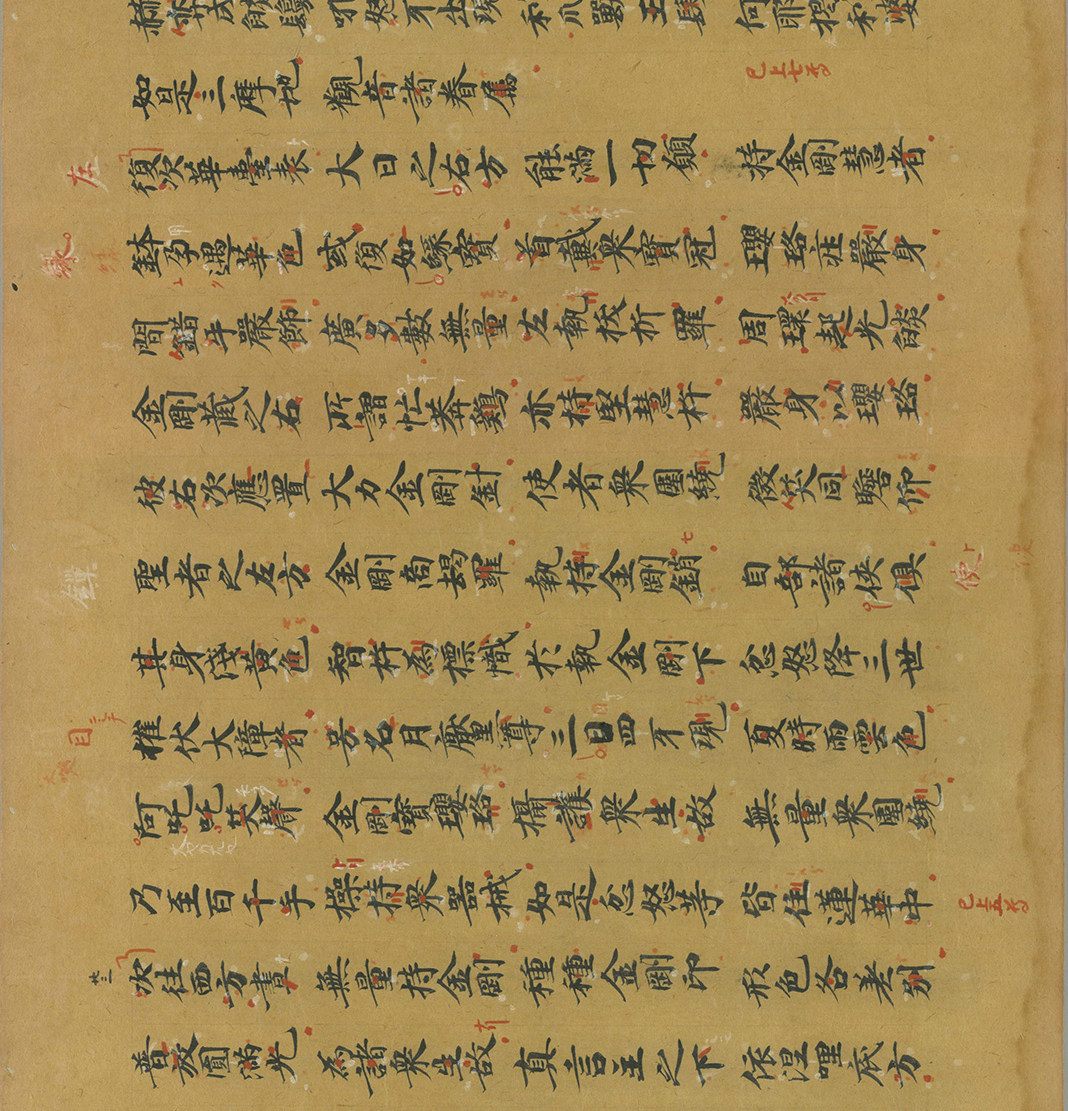 赫奕成餘鬘 吼怒牙出現 利爪獸王髦 何耶揭利婆
如是三摩地 觀音諸眷屬 已上七尊
復次華臺表 大日之右方 能滿一切願 持金剛慧者
鉢孕遇華色 或復如緑寶 首戴衆寶冠 瓔珞莊嚴身
間錯手嚴飾 廣多數無量 左執拔折羅 周環起光餤
金剛藏之右 所謂忙莽鷄 亦持堅慧杵 嚴身以瓔珞
彼右次應置 大力金剛針 使者衆圍繞 微笑同瞻仰
聖者之左方 金剛商朅羅 執持金剛鎖 自部諸俠俱 使
其身淺黃色 智杵為標幟 於執金剛下 忿怒降三世
摧伏大障者 号名月黶尊 三日四牙現 夏時雨雲色
阿吒吒笑聲 金剛寶瓔珞 攝護衆生故 無量衆圍繞
乃至百千手 操持衆器械 如是忿怒等 皆住蓮華中 已上五尊
次往西方畫 無量持金剛 種種金剛印 形色各差別
普放圓滿光 為諸衆生故 真言主之下 依涅哩底方